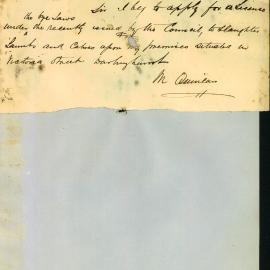 Sir I beg to apply for a License
the bye Laws
under the recently issued by the Council, to Slaughter
Lambs and Calves upon my premises situated in
Street Darlinghurst
M Quinlan